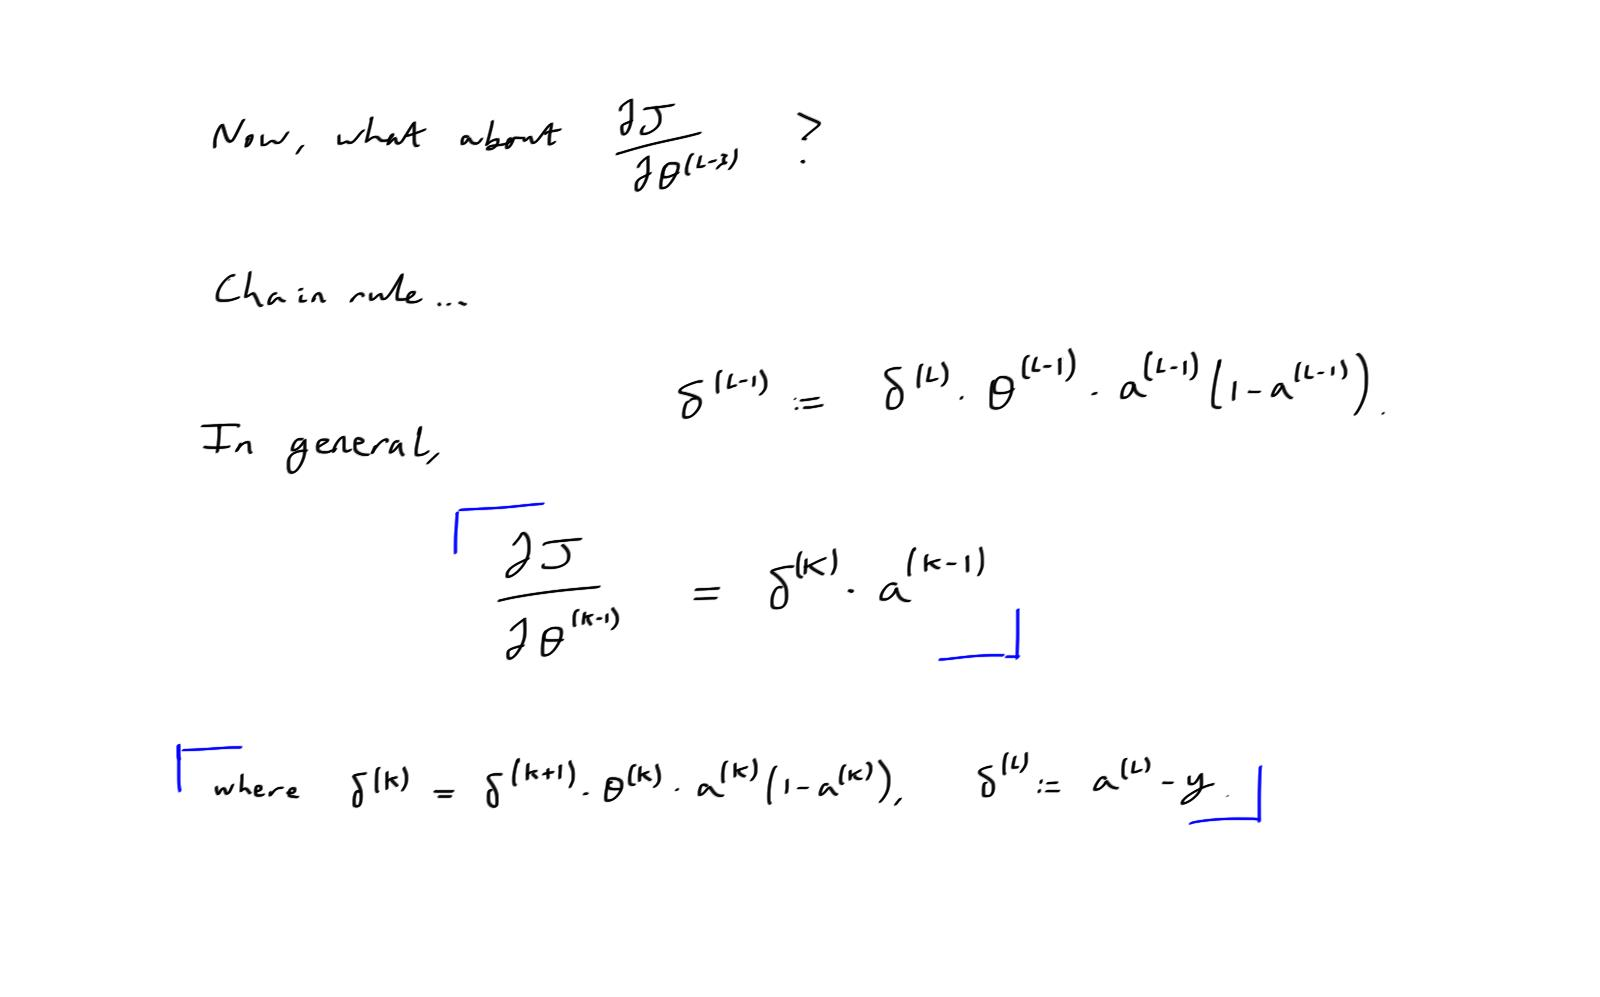 Now, what about ∂J/∂θ^(L-3) ?
Chain rule...
δ^(L-1) := δ^(L) · θ^(L-1) · a^(L-1) (1-a^(L-1)).
In general,
∂J/∂θ^(k-1) = δ^(k) · a^(k-1)
where δ^(k) = δ^(k+1) · θ^(k) · a^(k) (1-a^(k)), δ^(L) := a^(L) - y.